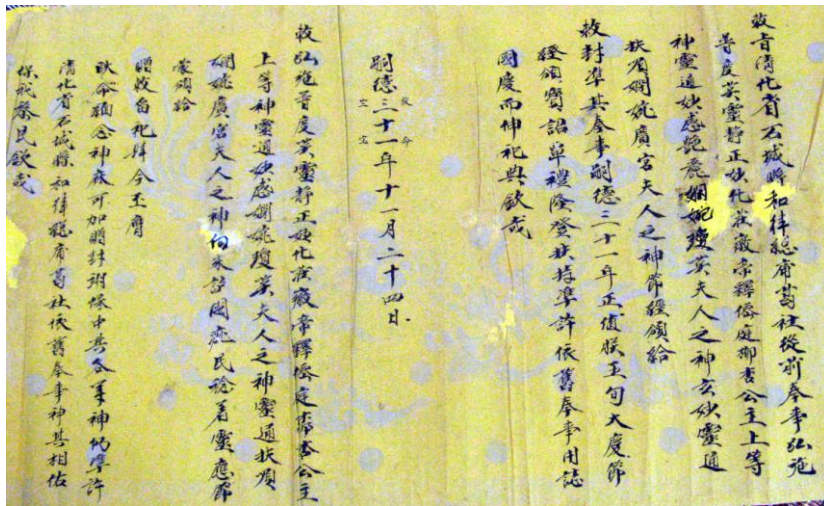 敕旨清化省石城縣和律總甫葛社從前奉事弘施
普度英靈靜正妙化莊徽帝釋僊庭柳杏公主上等
神靈通妙感艷麗嫻婉瓊英夫人之神玄妙靈通
扶眉嫻婉廣宮夫人之神節經頒給
敕封準其奉事嗣德三十一年正值朕五旬大慶節
經頒寶詔覃禮隆登扶持準許依舊奉事用誌
國慶而伸祀典欽哉
嗣德三十一年十一月二十四日
敕弘施普度英靈靜正妙化莊徽帝釋僊庭杏公主
上等神靈通妙感嫻婉瓊英夫人之神靈通扶眉
嫻婉廣宮夫人之神向來護國庇民稔著靈應節
蒙頒給
贈敕留祀肆今丕膺
耿命緬念神庥可加贈封翊保中興各等神仍準許
清化省石城縣和律總甫葛社依舊奉事神其相佑
保我黎民欽哉